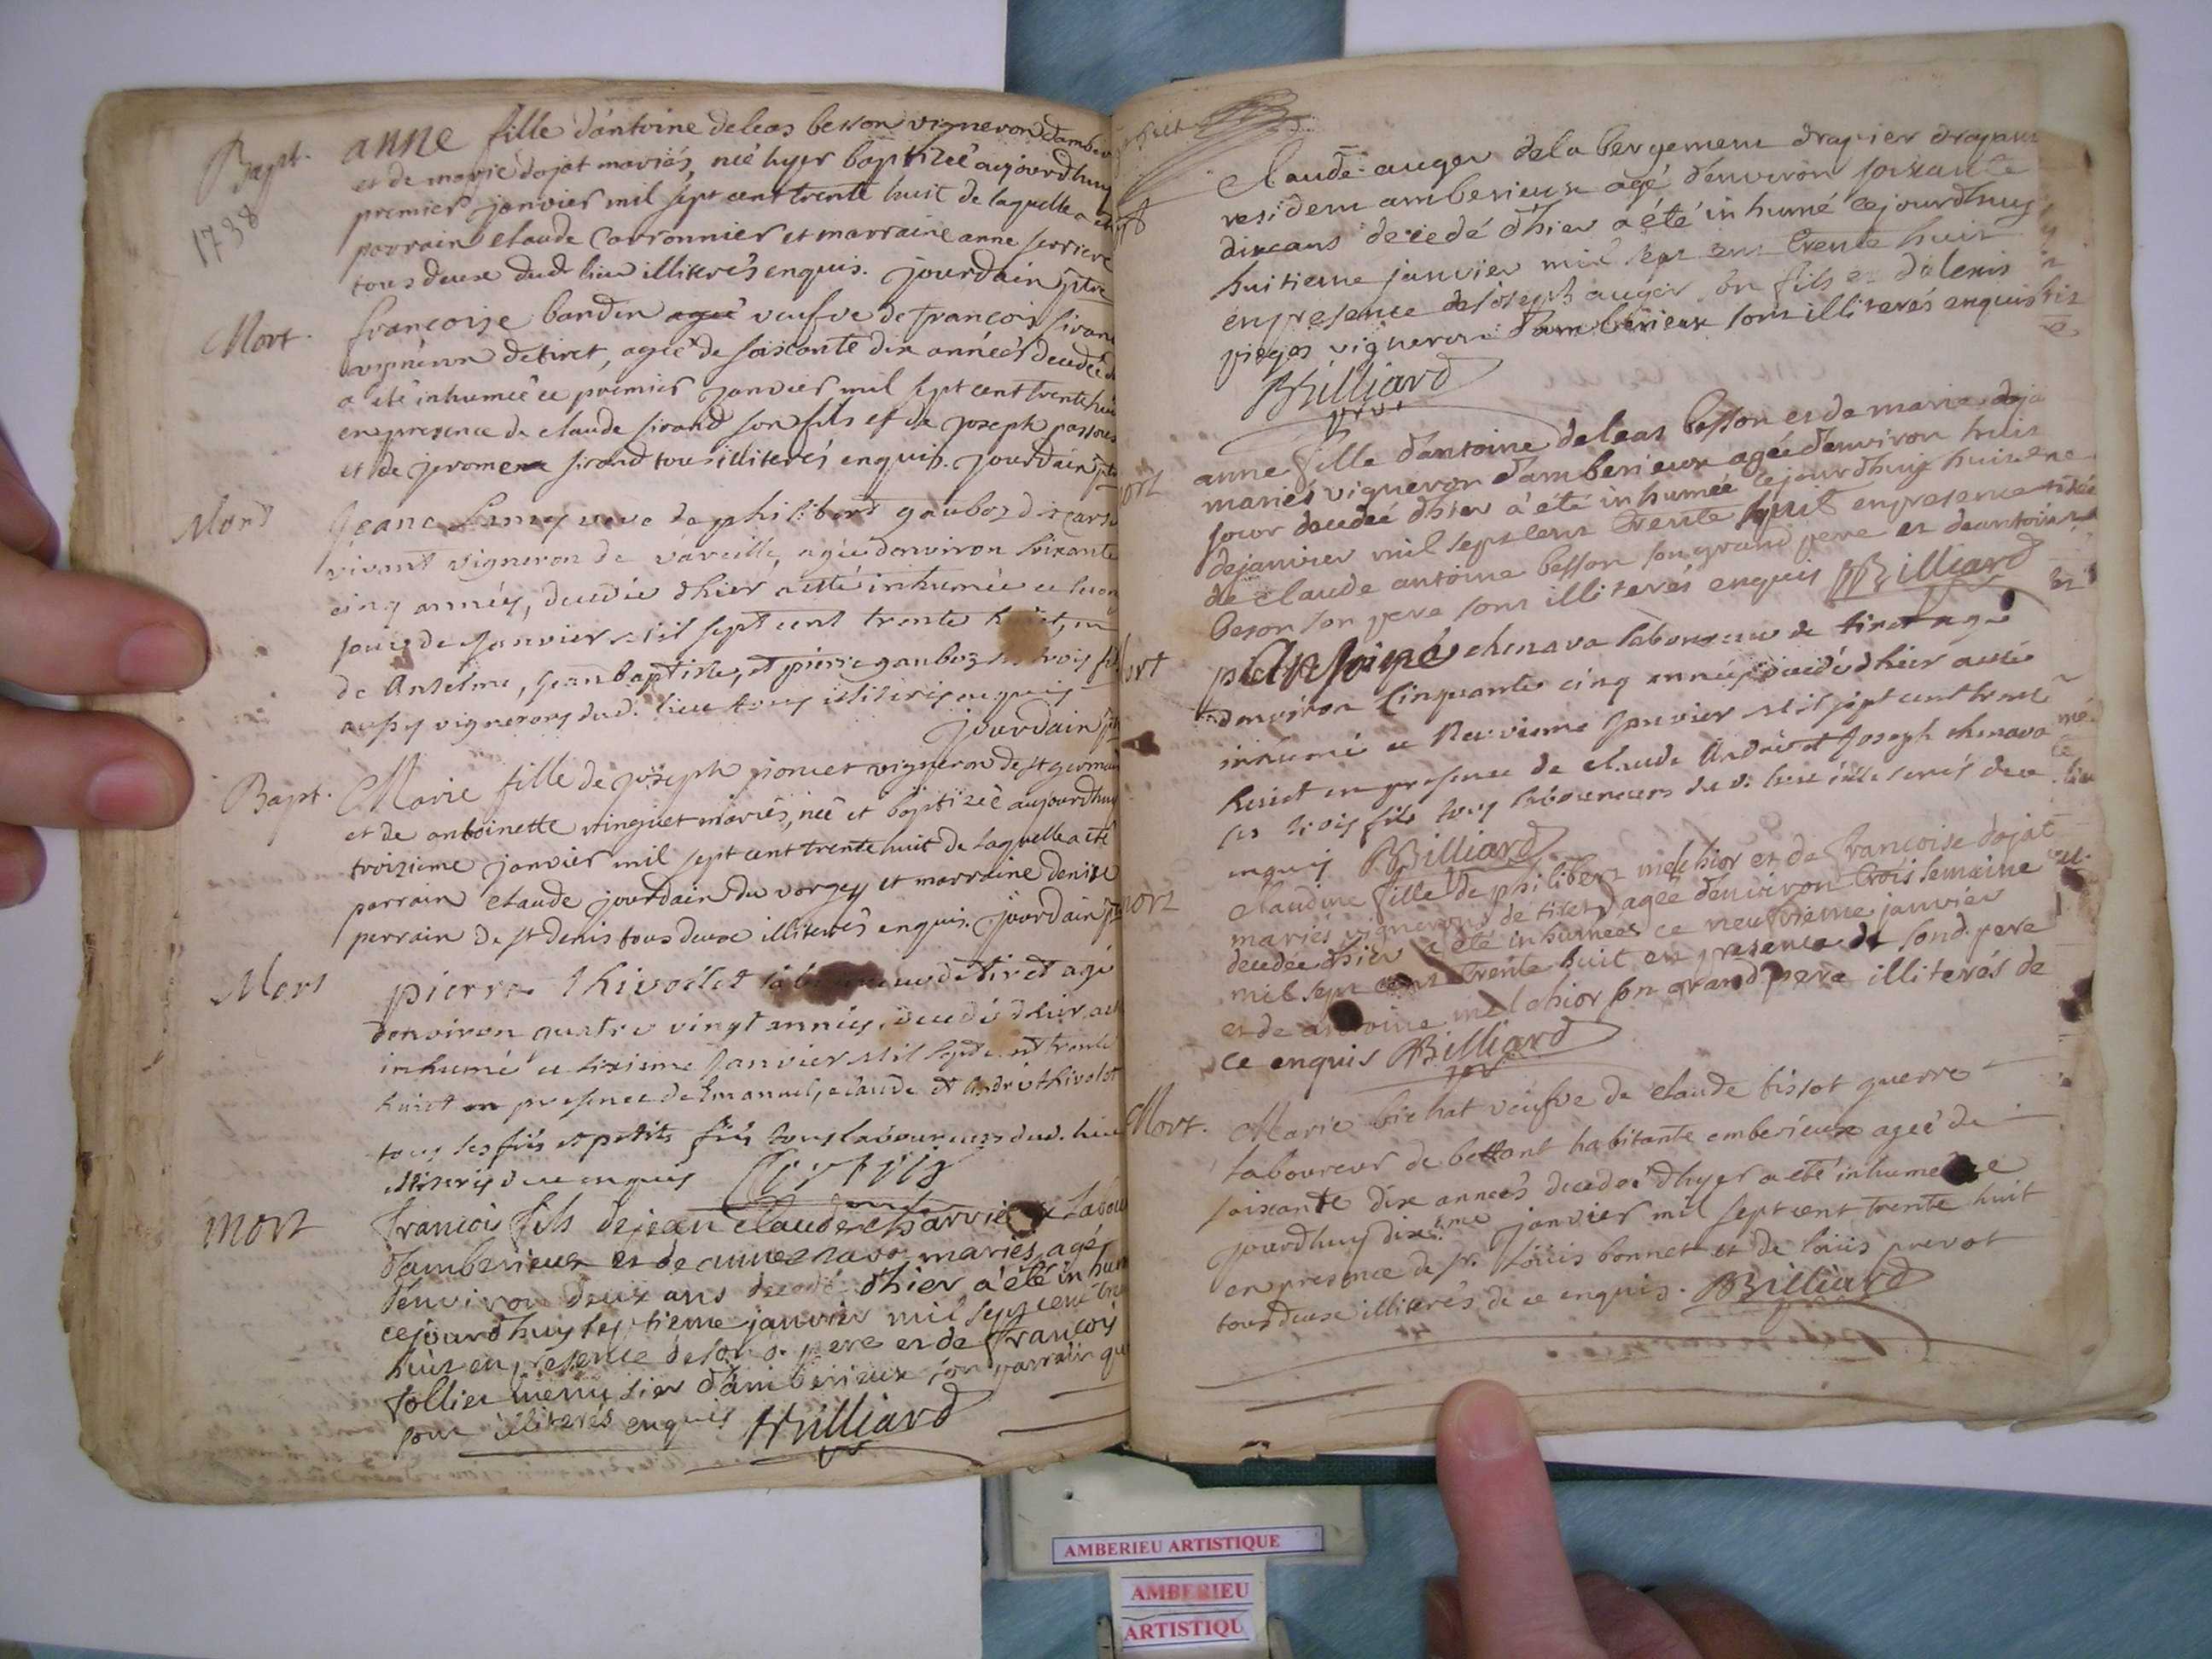 Bapt.
1738
anne fille d'antoine deleas besson vigneron d'amber
et de marie dojat mariés, neé hyer baptizeé aujourdhuy
premier janvier mil sept cent trente huit de laquelle a été
parrain claude Carronnier et marraine anne
tous deux dud. lieu illiterés enquis. jourdain ptre
Mort.
francoise bandin veufve de francois sirand
vigneron de tiret, ageé de soixante dix années decedeé
a eté inhumeé ce premier janvier mil sept cent trente hui
en presence de claude sirand son fils et de joseph
et de jerome sirand tous illiterés enquis. jourdain ptre
Mort
Jeane veve de philibert gauboz
vivant vigneron de vareille, agée denviron soixante
cinq années, decedée dhier a esté inhumée ce
jour de Janvier mil sept cent trente huict, en
de Anselme, Jean baptiste, et pierre gauboz ses trois fils
aussy vignerons dud. lieu tous illiterés enquis
jourdain ptre
Bapt.
Marie fille de joseph poncet vigneron de st germain
et de antoinette minguet mariés, neé et baptizeé aujourdhuy
troizieme janvier mil sept cent trente huit de laquelle a été
parrain claude jourdain du vorgey et marraine denise
perrain de st denis tous deux illiterés enquis. jourdain ptre
Mort
pierre thivollet de tiret agé
denviron quatre vingt années, decedé dhier, a esté
inhumé ce sixieme Janvier mil sept cent trente
huict en presence de Emanuel, claude et André thivolet
tous ses fils et petits fils tous laboureurs dud. lieu
illiterés de ce enquis
mort
francois fils de jean claude charvie labou
d'amberieux et de anne mariés, agé
d'environ deux ans decedé d'hier a été inhumé
cejourd'huy septieme janvier mil sept cent tren
huit en presence de son d. pere et de francoys
tollier menusier d'amberieux son parrain qui
sont illiterés enquis Billiard
Claude auger de la bergement drapier drapant
resident amberieux agé d'environ soixante
dix ans decedé d'hier a été inhumé cejourdhuy
huitieme janvier mil sept cent trente huit
en presence de joseph auger son fils et d'alexis
vigneron d'amberieux sont illiterés enquis
Billiard
ort
anne fille d'antoine deleas besson et de marie doja
mariés vigneron d'amberieux agée d'environ huit
jour decedée d'hier a été inhumée cejourdhuy huitieme
de janvier mil sept cent trente huit en presence
de claude antoine besson son grand pere et de antoine
beson son pere sont illiterés enquis Billiard
ort
Antoine chenava laboureur de tiret agé
denviron Cinquante cinq années decedé dhier a esté
inhumé ce Neuvieme Janvier mil sept cent trente
huict en presence de claude André et Joseph chenava
ses trois fils tous laboureurs dud. lieu illiterés de ce
enquis Billiard
mort
claudine fille de philibert melchior et de francoise dojat
mariés vignerons de tiret, agée denviron trois semaine
decedée d'hier a été inhumée ce neufvieme janvier
mil sept cent trente huit en presence de son d. pere
et de antoine melchior son grand pere illiterés de
ce enquis Billiard
Mort.
Marie bichat veufve de claude tissot guerre
laboureur de bettant habitante amberieux ageé de
soixante dix anneés decedeé d'hyer a eté inhumeé ce
jourdhuy dixieme janvier mil sept cent trente huit
en presence de sr. Louis bonnet et de louis prevot
tous deux illiterés de ce enquis. Billiard
AMBERIEU ARTISTIQUE
AMBERIEU
ARTISTIQU